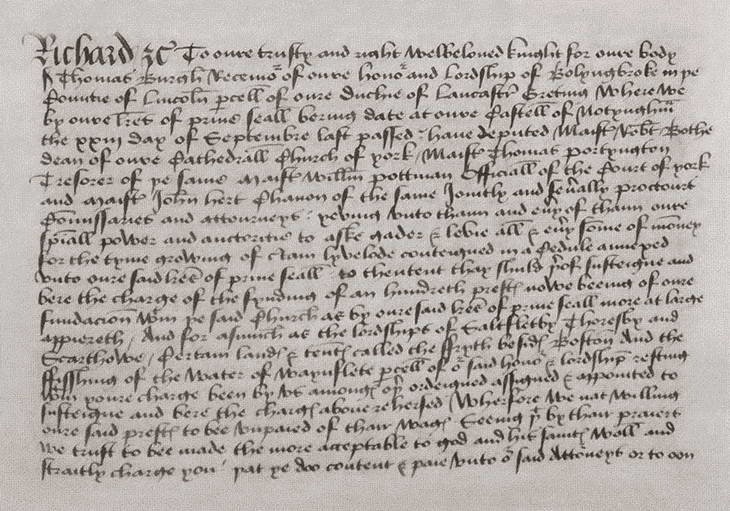 Richard &c To oure trusty and right welbeloved knight for oure body
S Thomas Burgh Receivor of oure honor and lordship of Bolyngbroke in ye
Countie of Lincoln pcell of oure duchie of Lancastr Greting Where we
by oure lres of prive seall bering date at oure Castell of Notyngham
the xxiii day of Septembre last passed have deputed Maistr Robt Bothe
dean of oure Cathedrall Church of york / Maistr Thomas portyngton
Tresorer of ye same Maistr Willm pottman Officiall of the Court of york
and Maistr John hert Chanon of the same Joinctly and sevally procours
Comissaries and attourneys yeving unto thaim and evy of thaim oure
spiall power and auctoritie to aske gader & levie all & evy some of money
for the tyme growing of Ctain lyvelode conteigned in a Cedule annexed
unto oure said lres of prive seall to thentent thay shuld yof susteigne and
bere the charge of the fynding of an hundreth prestes nowe beeing of oure
fundacion wtin ye said Church as by oure said lres of prive seall more at large
appiereth / And for asmuch as the lordships of Saltfletby Thoresby and
Scarthowe / Certain landes & tentes called the ffryth beside Boston And the
ffisshing of the Water of Waynflete pcell of or said honor & lordship resting
wtin youre charge been by us amonges othr ordeigned assigned & appointed to
susteigne and bere the charges above rehersed Wherfore we nat willing
oure said prestes to bee unpaied of thair wages Seeing yt by thair praiers
we trust to bee made the more acceptable to god and his saints Woll and
straitly charge you yat ye doo content & paie unto or said Attorneys or to oon